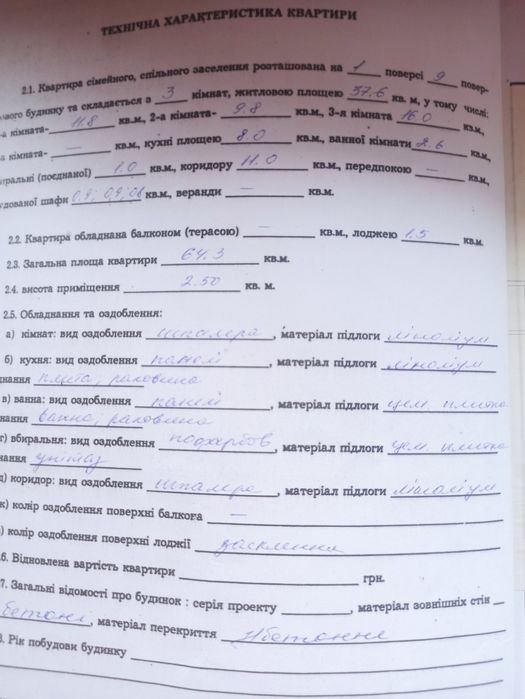 ТЕХНІЧНА ХАРАКТЕРИСТИКА КВАРТИРИ
2.1. Квартира сімейного, спільного заселення розташована на 1 поверсі 9 повер-
вого будинку та складається з 3 кімнат, житловою площею 37.6 кв. м, у тому числі:
-а кімната- 11.8 кв.м, 2-а кімната- 9.8 кв.м, 3-я кімната 16.0 кв.м,
-а кімната- — кв.м, кухні площею 8.0 кв.м, ванної кімнати 2.6 кв.м,
иральні (поєднаної) 1.0 кв.м, коридору 11.0 кв.м, передпокою — кв.м,
удованої шафи 0,9; 0,9; 0,8 кв.м, веранди — кв.м.
2.2. Квартира обладнана балконом (терасою) — кв.м., лоджею 1.5 кв.м.
2.3. Загальна площа квартири 64.3 кв.м.
2.4. висота приміщення 2.50 кв. м.
2.5. Обладнання та оздоблення:
а) кімнат: вид оздоблення шпалера, матеріал підлоги лінолиум
б) кухня: вид оздоблення панелі, матеріал підлоги лінолиум
днання плита, раковина
в) ванна: вид оздоблення панелі, матеріал підлоги цем. плитка
нання ванна, раковина
г) вбиральня: вид оздоблення, матеріал підлоги цем. плитка
нання унітаз
д) коридор: вид оздоблення шпалера, матеріал підлоги лінолиум
к) колір оздоблення поверхні балкога —
) колір оздоблення поверхні лоджії засклення
.6. Відновлена вартість квартири грн.
7. Загальні відомості про будинок : серія проекту , матеріал зовнішніх стін
бетоні, матеріал перекриття з/бетонне
8. Рік побудови будинку